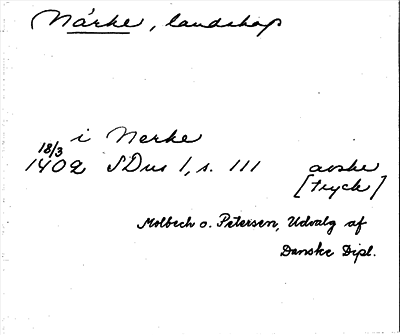 Närke, landskap
i Nerke
18/3
1402 SDns 1, s. 111 avskr
[tryck]
Molbech o. Petersen, Udvalg af
Danske Dipl.